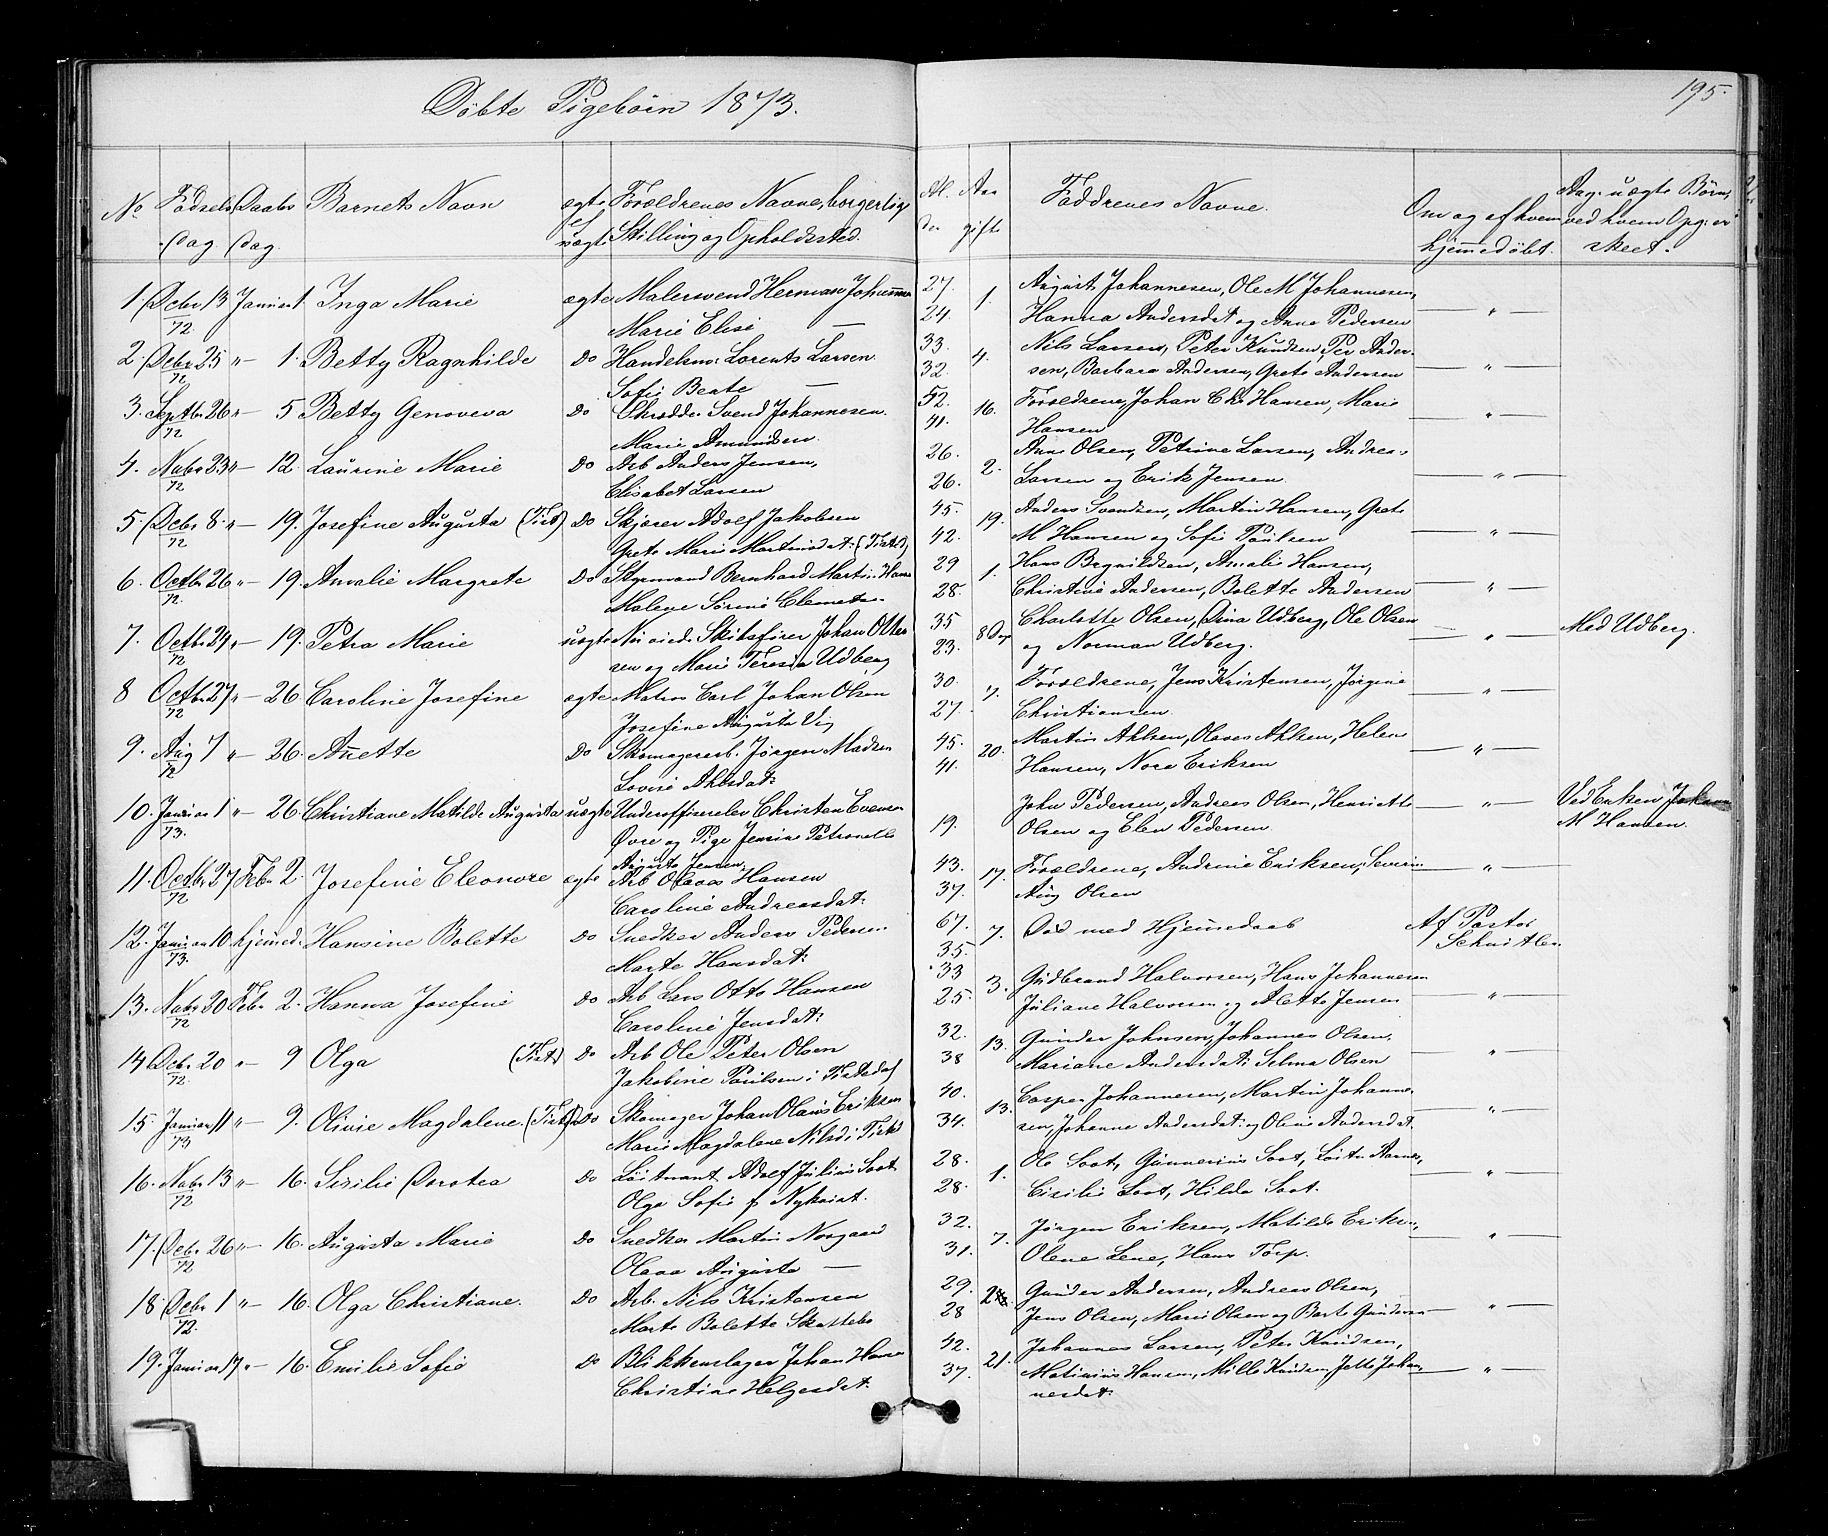 Døbte Pigebörn 1873.
195.
No Födsels Dag Daabs Dag. Barnets Navn ægte el uægte Forældrenes Navne, borgerlig Stilling og Opholdssted. Al der Aar gift Faddrenes Navne. Om og af hvem hjemmedøbt. Ang. uægte Børn, ved hvem Opg. er skeet.
1 Decbr 13 Januar 1. Inga Marie ægte Malersvend Herman Johannesen 27. 1. August Johannesen, Ole M Johannesen, — " —
72 Marie Elise — 24. Hanna Andersdat og Anne Pedersen
2. Decbr 25 " — 1. Betty Ragnhilde Do Handelsm: Lorents Larsen 33. 4. Nils Larsen, Peter Knudsen, Per Ander- — " —
72 Sofie Beate — 32. sen, Barbara Andersen, Grete Andersen
3. Septbr 26 " — 5 Betty Genoveva Do Skrædder Svend Johannesen. 52. 16. Forældrene, Johan Chr Hansen, Marie — " —
72 Marie Amundsen. 41. Hansen
4. Novbr 23 " — 12. Laurine Marie Do Arb Anders Jensen, 26. 2. Anne Olsen, Petrine Larsen, Andreas — " —
72 Elisabet Larsen 26. Larsen og Erik Jensen.
5 Decbr 8. " — 19. Josefine Augusta (Tist) Do Skjærer Adolf Jakobsen 45. 19. Anders Svendsen, Martin Hansen, Grete — " —
72 Grete Marie Martinsdat: (Tistd) 42. M Hansen og Sofie Paulsen
6. Octbr 26 " — 19. Amalie Margrete Do Styrmand Bernhard Martin Hans 29 1. Hans Bryniildsen, Amalie Hansen, — " —
72. Malene Sørine Clemets 28. Christine Andersen, Bolette Andersen
7. Octbr 29 " — 19. Petra Marie uægte Johan Otter 35 8 Charlotte Olsen, Dina Udberg, Ole Olsen — " — Med Udberg.
72 sen og Marie Teresia Udberg 23. og Norman Udberg.
8 Octbr 27 " — 26 Caroline Josefine ægte Matros Carl Johan Olsen 30. 7. Forældrene, Jens Kristensen, Jørgine — " —
72 Josefine Augusta Vig 27. Christiansen.
9. Aug 7 " — 26. Anette Do Skomagerarb. Jørgen Madsen 45. 20. Martin Ahlsen, Olaves Ahlsen, Helene — " —
72 Lovise Ahlsdat: 41. Hansen, Nora Eriksen
10. Januar 1 " — 26. Christiane Matilde Augusta uægte Underofficerelev Christen Evensen John Pedersen, Andreas Olsen, Henriette — " — Ved Enken Johan
73. Øvre og Pige Jensine Petronelle 19. Olsen og Elen Pedersen M Hansen.
Augusta Jensen.
11. Octbr 27 Febr 2. Josefine Eleonore ægte Arb Olaves Hansen 43. 17. Forældrene, Andrine Eriksen, Severin — " —
72 Caroline Andreasdat: 37. Aug Olsen
12. Januar 10. hjemmed. Hansine Bolette Do Snedker Anders Pedersen. 67. 7. Död med Hjemmedaab Af Pastor
73. Marte Hansdat: 35. Schnitler
13. Novbr 20 Febr 2. Hanna Josefine Do Arb Lars Otto Hansen 33 3. Gudbrand Halvorsen, Hans Johannesen — " —
72 Caroline Jensdat: 25. Juliane Halvorsen og Alette Jensen
14 Decbr 20 " — 9 Olga (Tist.) Do Arb Ole Peter Olsen 32. 13. Gunder Johnsen, Johannes Olsen. — " —
72. Jakobine Paulsen i Tistedal 38 Mariane Andersdat: Selma Olsen
15 Januar 11 " — 9. Olivie Magdalene. (Tist) Do Skomager Johan Olaus Eriksen 40. 13. Casper Johannesen, Martin Johanne- — " —
73 Marie Magdalene Nilsd i Tistd 34. sen, Johanne Andersdat: og Olene Andersdat.
16. Novbr 13 " — 16. Sesilie Dorotea Do Löitnant Adolf Julius Soot 28. 1. Ole Soot, Gunnerius Soot, Löitn Aarnes, — " —
72 Olga Sofie f Nykvist. 28. Cisilie Soot, Hilda Soot.
17. Decbr 26 " — 16. Augusta Marie Do Snedker Martin Norgaard 32. 7. Jørgen Eriksen, Matilde Eriksen, — " —
72 Olava Augusta — 31. Olene Lene, Hans Torp.
18. Decbr 1 " — 16. Olga Christiane. Do Arb. Nils Kristensen 29. Gunder Andersen, Andreas Olsen, — " —
72. Marte Bolette Skattebo 28 Jens Olsen, Marie Olsen og Berte Gundersen
19. Januar 17 " — 16. Emilie Sofie Do Blikkenslager Johan Hansen 42. 21. Johannes Larsen, Peter Knudsen, — " —
Christine Helgesdat: 37. Matinius Hansen, Mille Knudsen, Jette Johan-
nesdat: